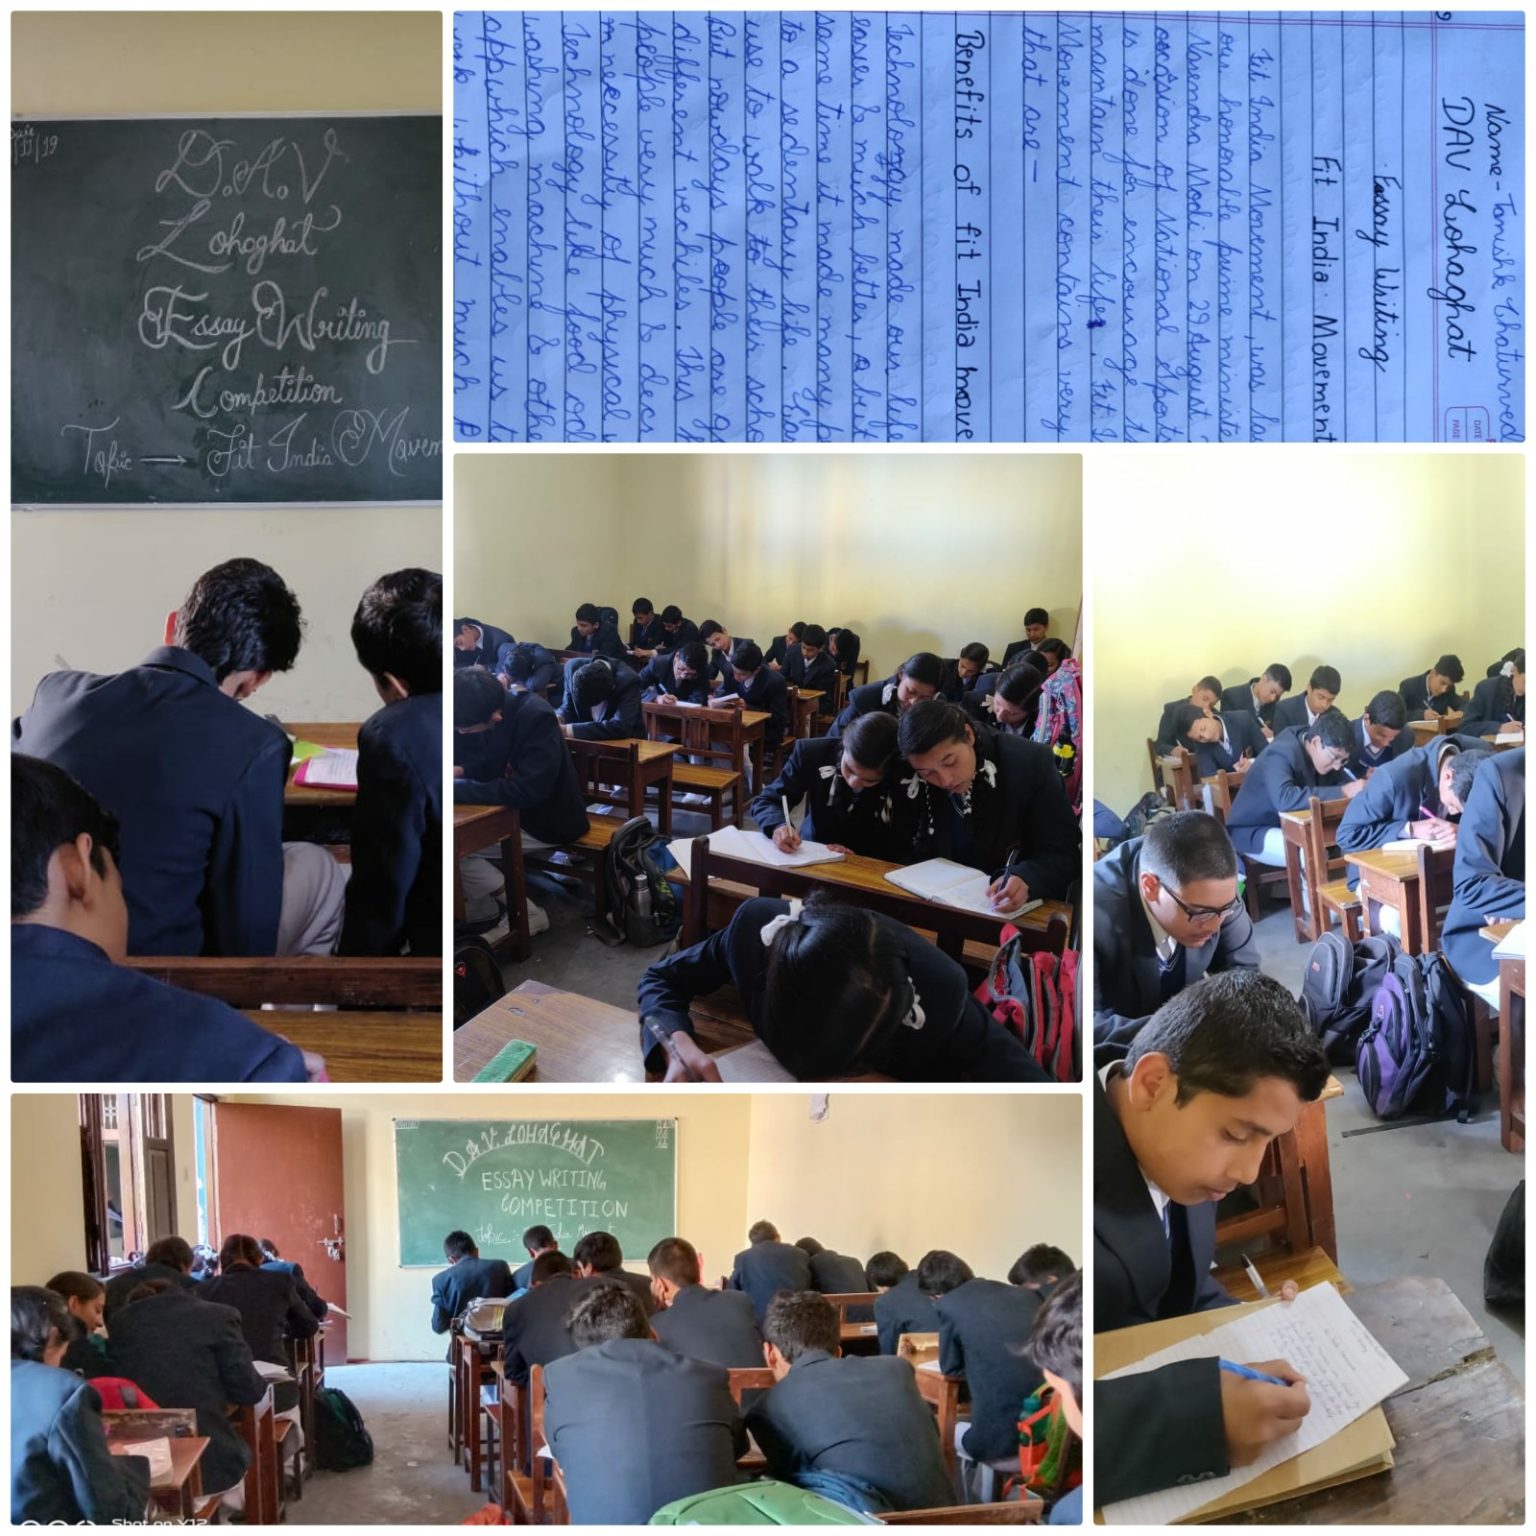 Date
/11/19
D.A.V
Lohaghat
Essay Writing
Competition
Topic → Fit India Movem
9
Name - Tanishk Chaturved
DAV Lohaghat
DATE
PAGE
Essay Writing
Fit India Movement
Fit India Movement, was la
our honorable prime ministe
Narendra Modi on 29 August
occasion of National Sports
is done for encourage t
maintain their life. Fit I
Movement contains very
that are -
Benefits of fit India move
Technology made our life
easier & much better, but
same time it made many p
to a sedentary life.
use to walk to their scho
But nowdays people are
different vechiles. This
people very much & decr
necessity of physical
Technology like food ord
washing machine & othe
app which enables us to
work without much p
D.A.V. LOHAGHAT
ESSAY WRITING
COMPETITION
Topic :-
Shot on Y12